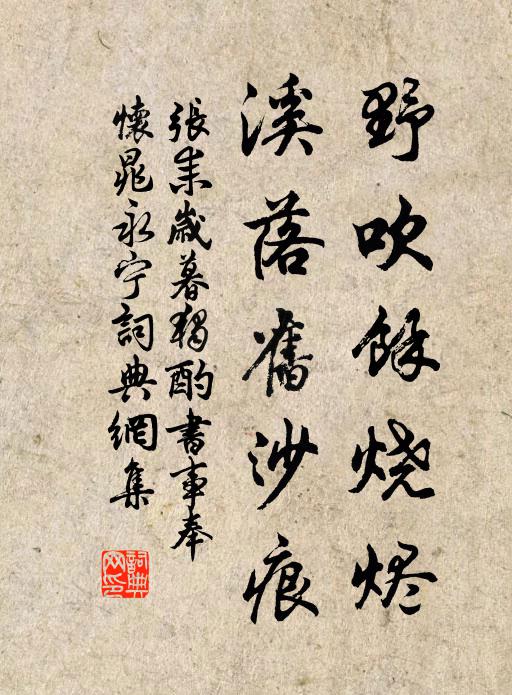 野吹餘烧烬
溪落舊沙痕
張耒歲暮獨酌書事奉
懷晁永宁詞典網集
詞典
网印